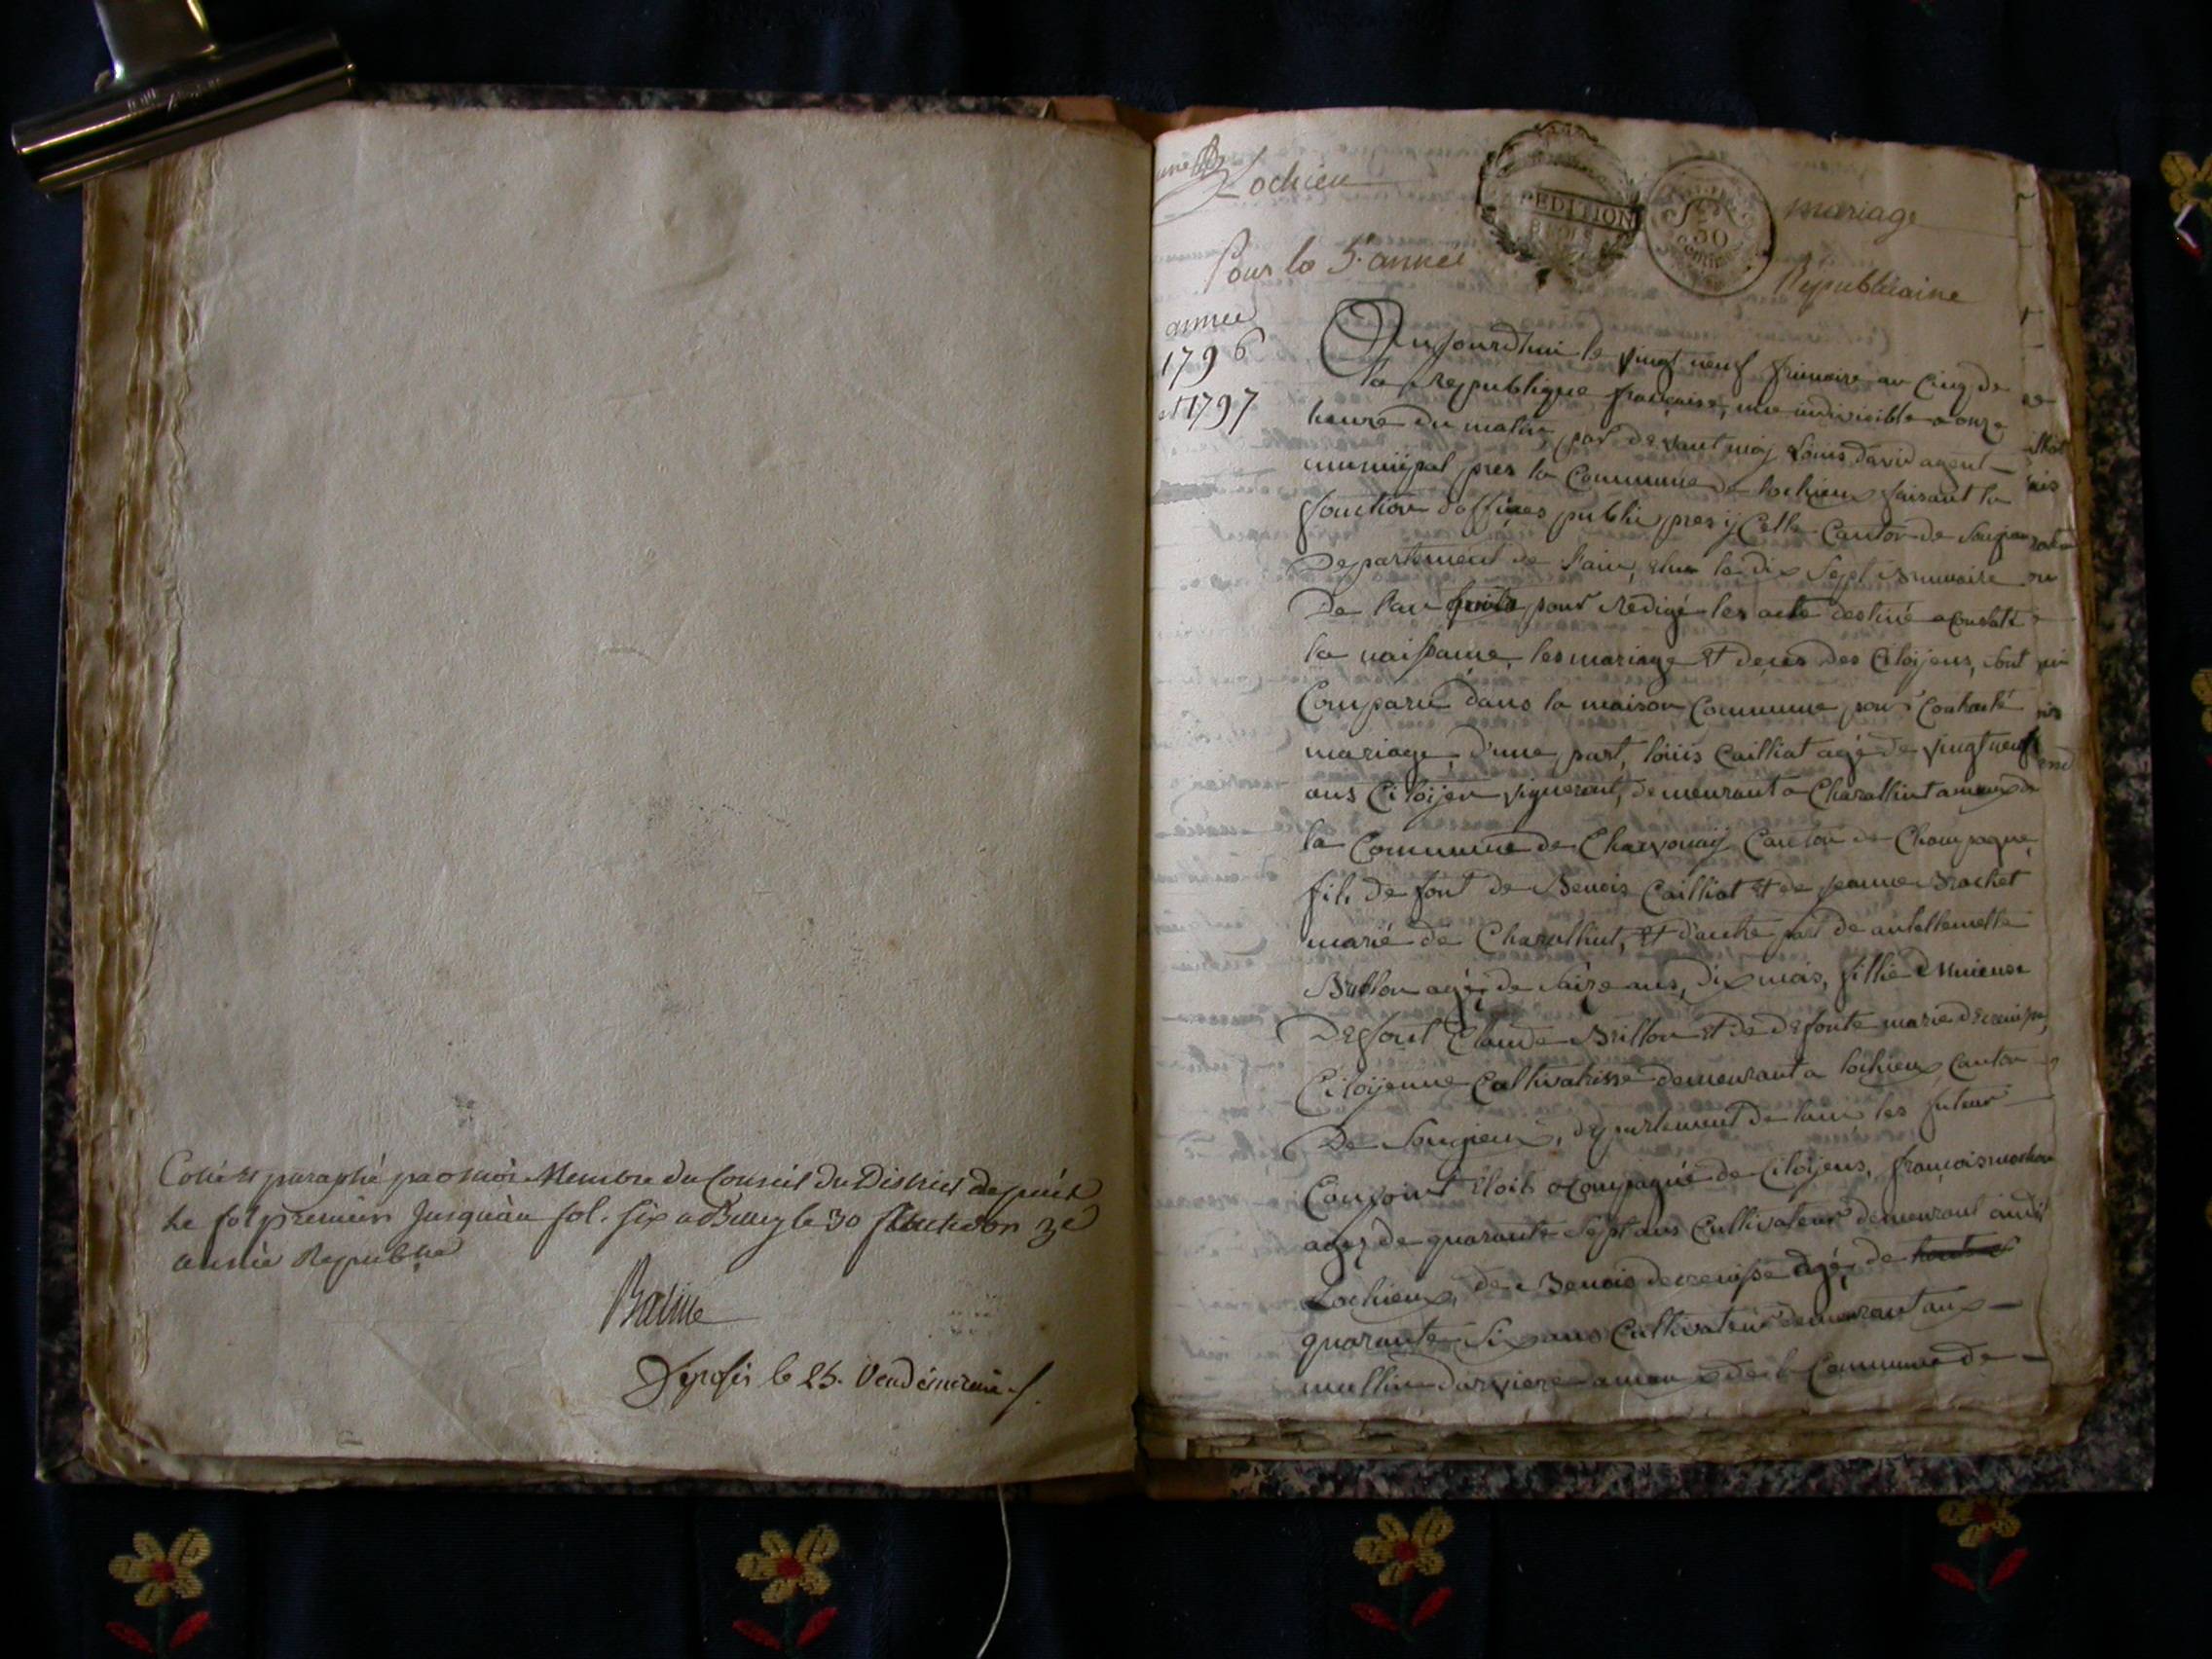 Coté et paraphé par moi Membre du Conseil du District depuis
le fol premier Jusquau fol. six a Belley le 30 3e
année Republne
Balme
Déposés le 25. Vendémiaire
Lochieu
PEDITION
50
mariage
Pour la 5e année
Républicaine
année
1796
et 1797
Aujourdhui le vingt neuf frimaire an Cinq de
la Republique française, une indivisible a onze
heure du matin, par devant moy Louis david agent
municipal pres la Commune de lochieux faisant la
fonction d'officies public pres ycelle Canton de Songieu
Departement de l'ain, elue le dix Sept Brumaire
De l'an pour Redigé les acte destiné a Constaté
la naissance, les mariage et deces des Citoijens, sont
Comparu dans la maison Commune pour Contracté
mariage, d'une part, louis Cailliat agé de vingt neuf
ans Citoijen vigneront, demeurant a Charallint ameaux de
la Commune de Charvonay Canton de Champagne
fils de font de Benois Cailliat et de jeanne Brachet
marié de Charallint, et d'autre part de
Brillon agé de saize ans, dix mois, fillie Mineure
Defont Claude Brillon et de defonte marie
Citoijenne Cultivatrisse demeurant a lochieux Canton
De Songieux, departement de lain les futeur
Conjoint etoit acompagné de Citoijens, françois
agez de quarante Sept ans Cultivateur demeurant audit
Lochieux, de Benois agé, de
quarante Six ans Cultivateur demeurant aux
mullin darviere ameaux de la Commune de